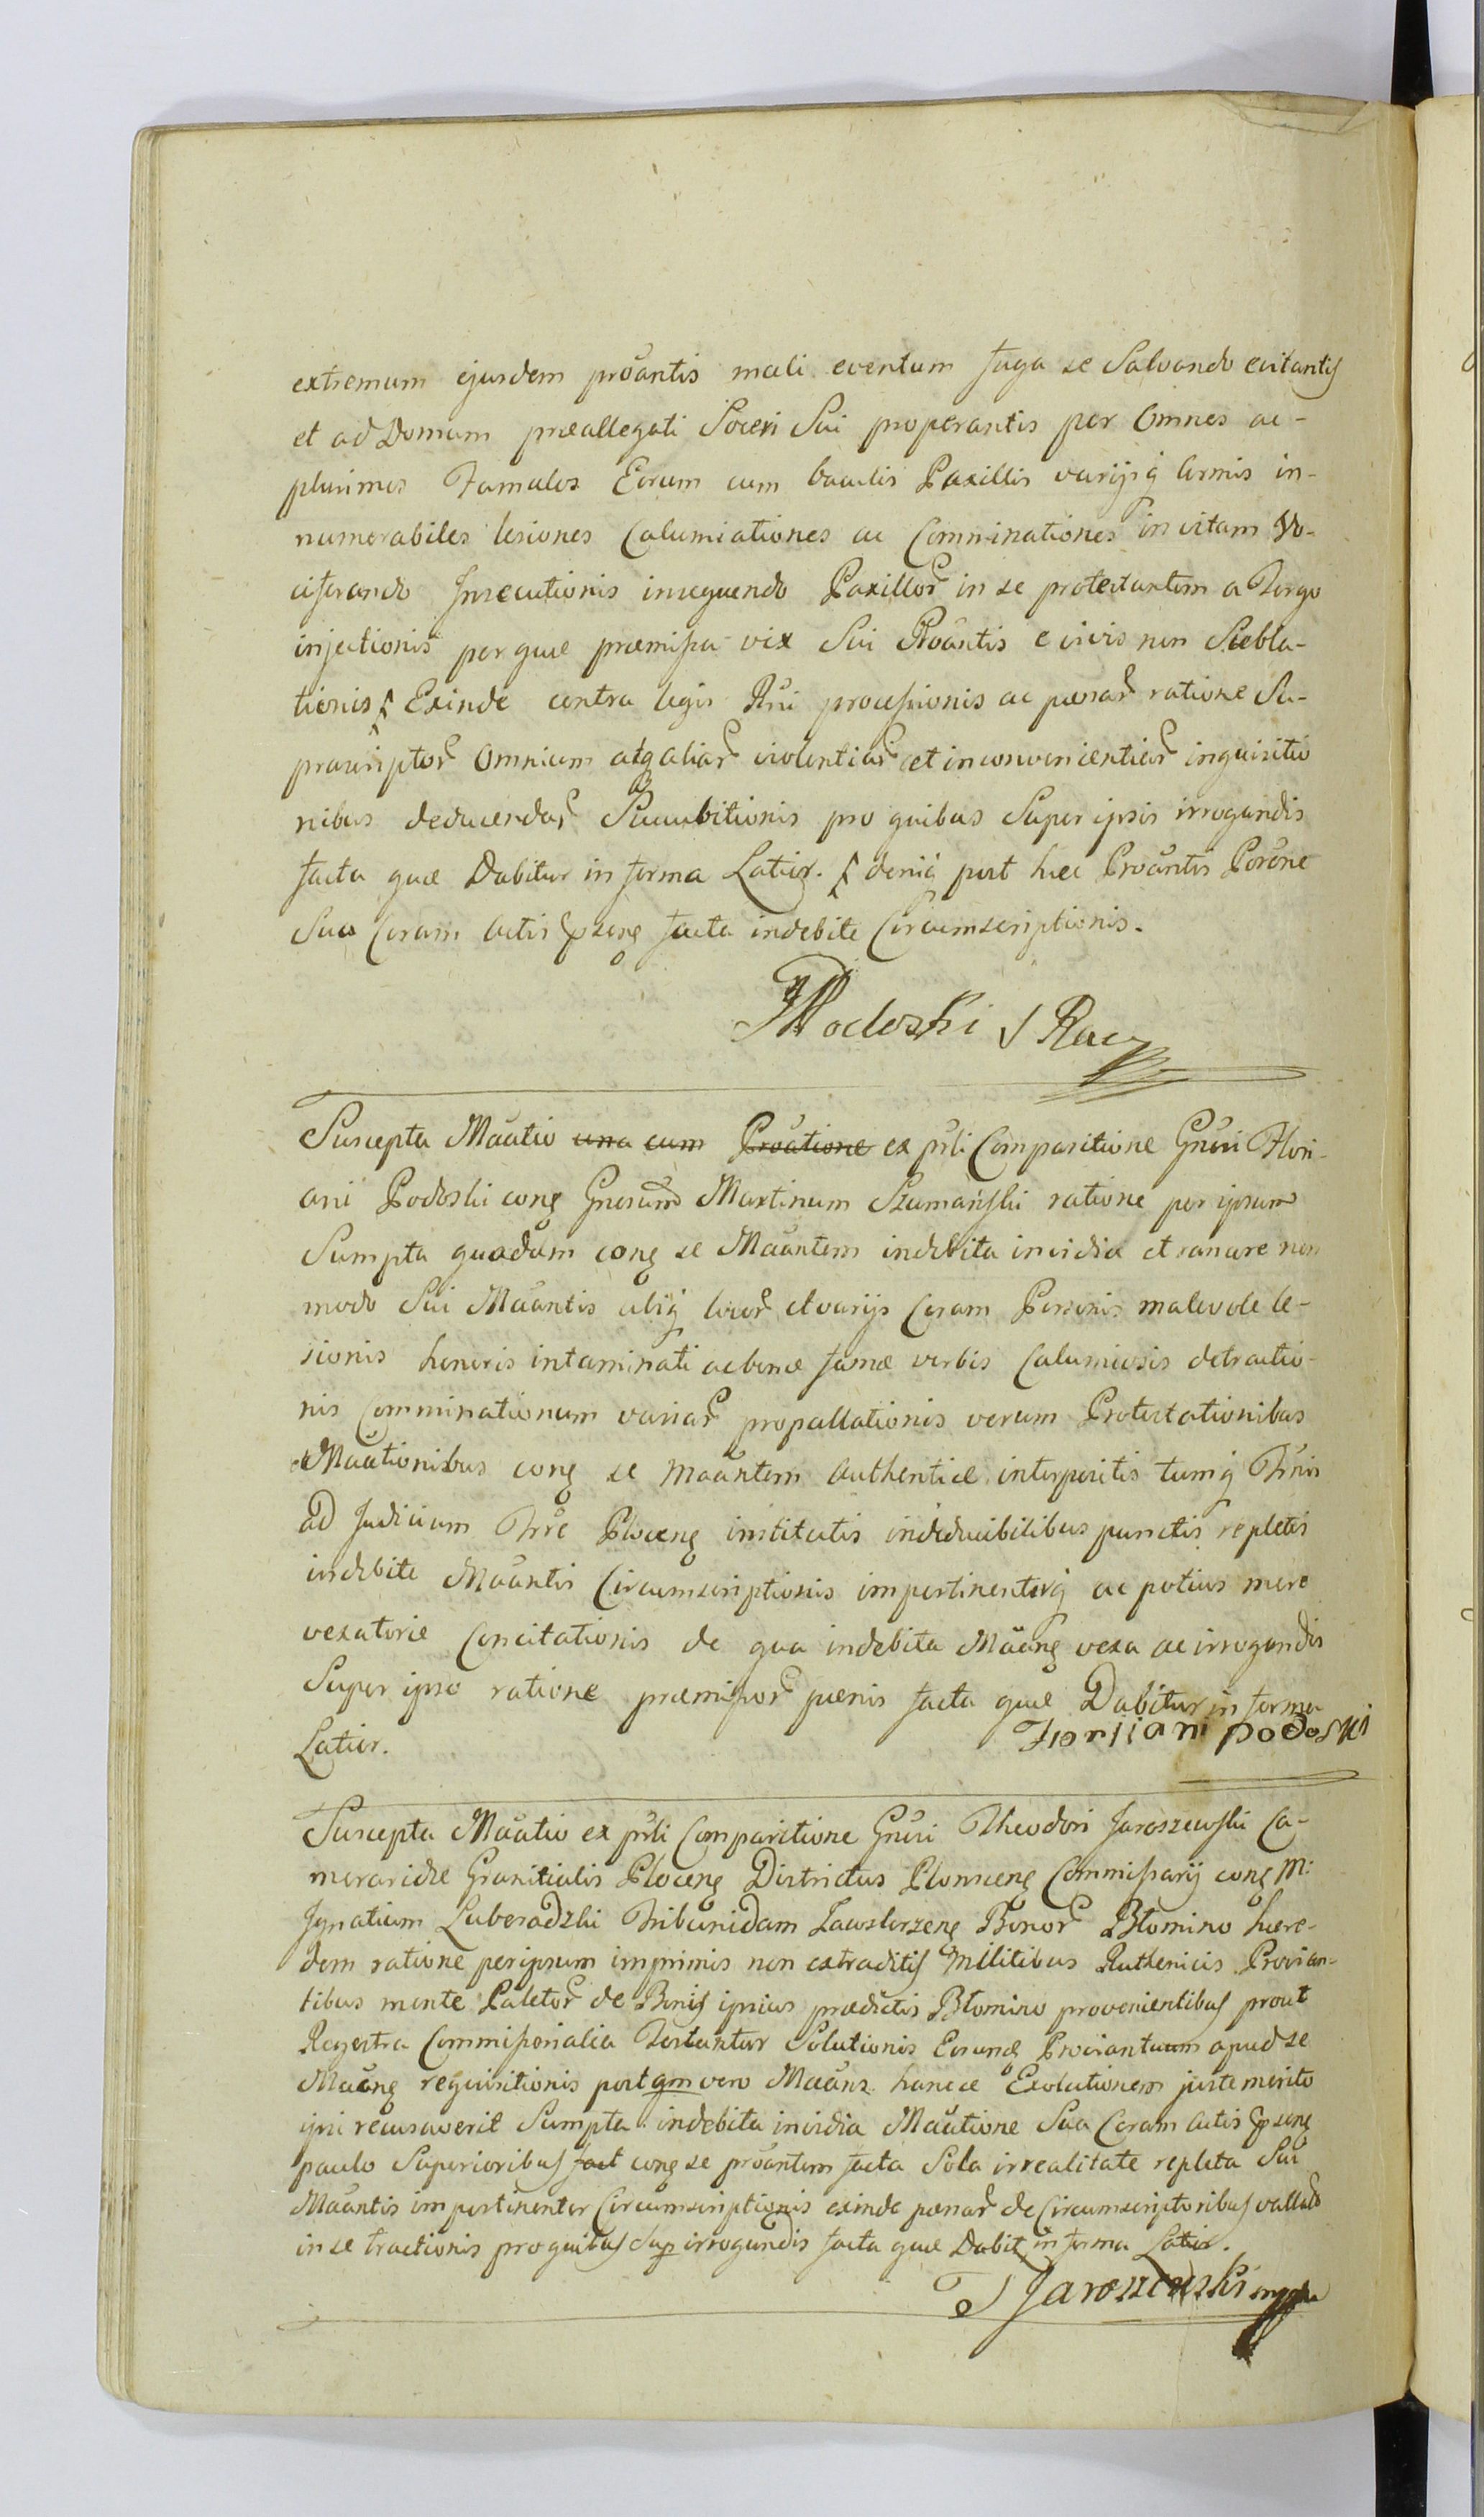 extremum ejusdem proantis mali eventum fuga se Salvando evitantis
et ad Domum præallegati Soceri Sui properantis per Omnes ac-
plurimos Famulos Eorum cum baculis Paxillis varijsq armis in-
numerabiles lesiones Calumiationes ac Comminationes in vitam Vo-
ciferando Insecutionis insequendo Paxillor in se protestantem a Tergo
injectionis per quæ præmissa vix Sui Proantis e vivis non Sub la-
tionis Exinde contra legis Rni processionis ac pænar ratione Su-
prascriptor Omnium atq aliar violentiar et inconvenientiar inquisitio
nibus deducendar Succubitionis pro quibus Super ipsis irrogandis
facta quæ Dabitur in forma Latior. deniq post hæc Proantis Porone
Sua Coram Actis Psenq facta indebite Circumscriptionis.
Podoski Rac
Suscepta Maatio una cum Proatione ex prli Comparitione Gnrsi Flori-
ani Podoski conq Gnerosum Martinum Szumański ratione per ipsum
Sumpta quadam conq se Maantem indebita invidia et rancore non
modo Sui Maantis ubiq locor et varijs Coram Personis malevole le-
sionis honoris intaminati ac bonæ famæ verbis Calumiosis detractio-
nis Comminationum variar propallationis verum Protestationibus
et Maationibus conq se Maantem Authenticæ interpositis tumq Trnis
ad Judicium Trre Plocenq institutis indeducibilibus punctis repletis
indebite Maantis Circumscriptionis impertinenterq ac potius mere
vexatorie Concitationis de qua indebita Maanq vexa ac irrogandis
Super ipso ratione præmissor pænis facta quæ Dabitur in forma
Latior. Floriiani podoski
Suscepta Maatio ex prli Comparitione Gnrsi Theodori Jaroszewski Ca-
merarij Granitialis Plocenq Districtus Plonscenq Commissarij conq M:
Ignatium Luberadzki Tribunidam Zawskrzenq Bonor Błomino hære-
dem ratione per ipsum imprimis non extraditis Militibus Ruthenicis Provian-
tibus mente Paletor de Bonis ipsius prædictis Błomino provenientibus prout
Regestra Commissorialia Testantur Solutionis Eorunq Proviantuum apud se
Maanq requisitionis postqm vero Maans hance Exolutionem juste merito
ipsi recusaverit Sumpta indebita invidia Maatione Sua Coram Actis Psenq
paulo Superioribus fact conq se proantem facta Sola irrealitate repleta Sui
Maantis impertinenter Circumscriptionis exinde pænar de Circumscriptoribus vallato
in se tractionis pro quibus Sup irrogandis facta quæ Dabit in forma Latior.
T Jaroszewski mppa